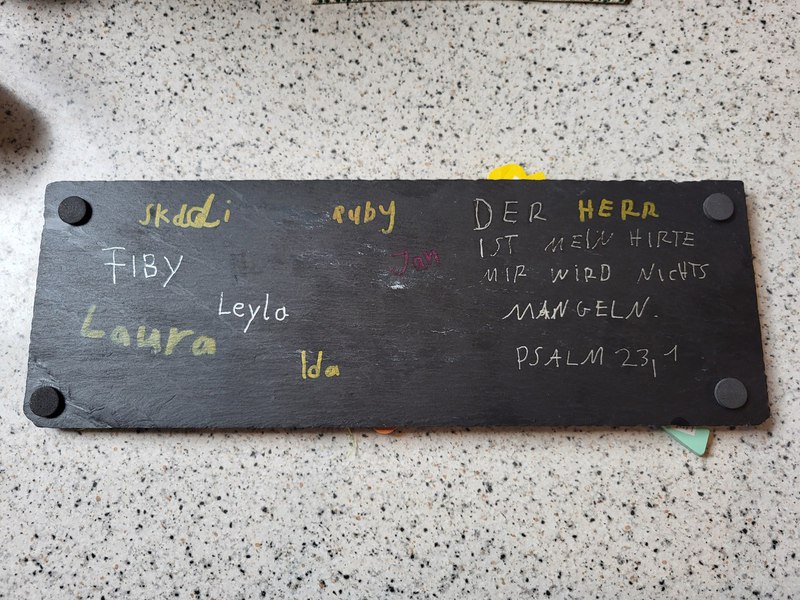 Skadi
Ruby
FIBY
Jan
Leyla
Laura
Ida
DER HERR
IST MEIN HIRTE
MIR WIRD NICHTS
MANGELN.
PSALM 23,1